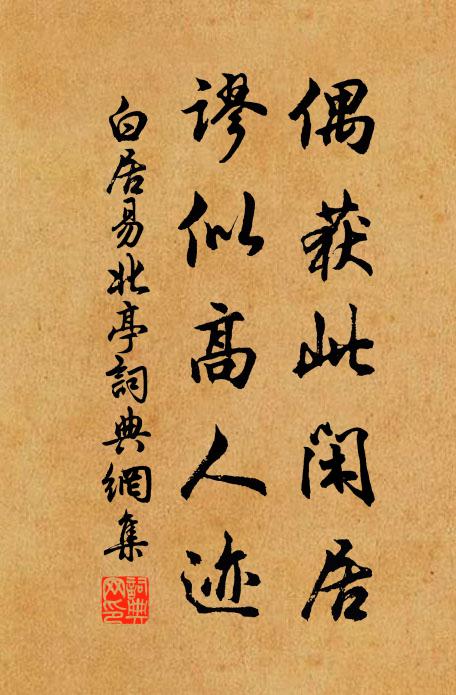 偶获此闲居
谬似高人迹
白居易北亭詞典網集
詞典网印